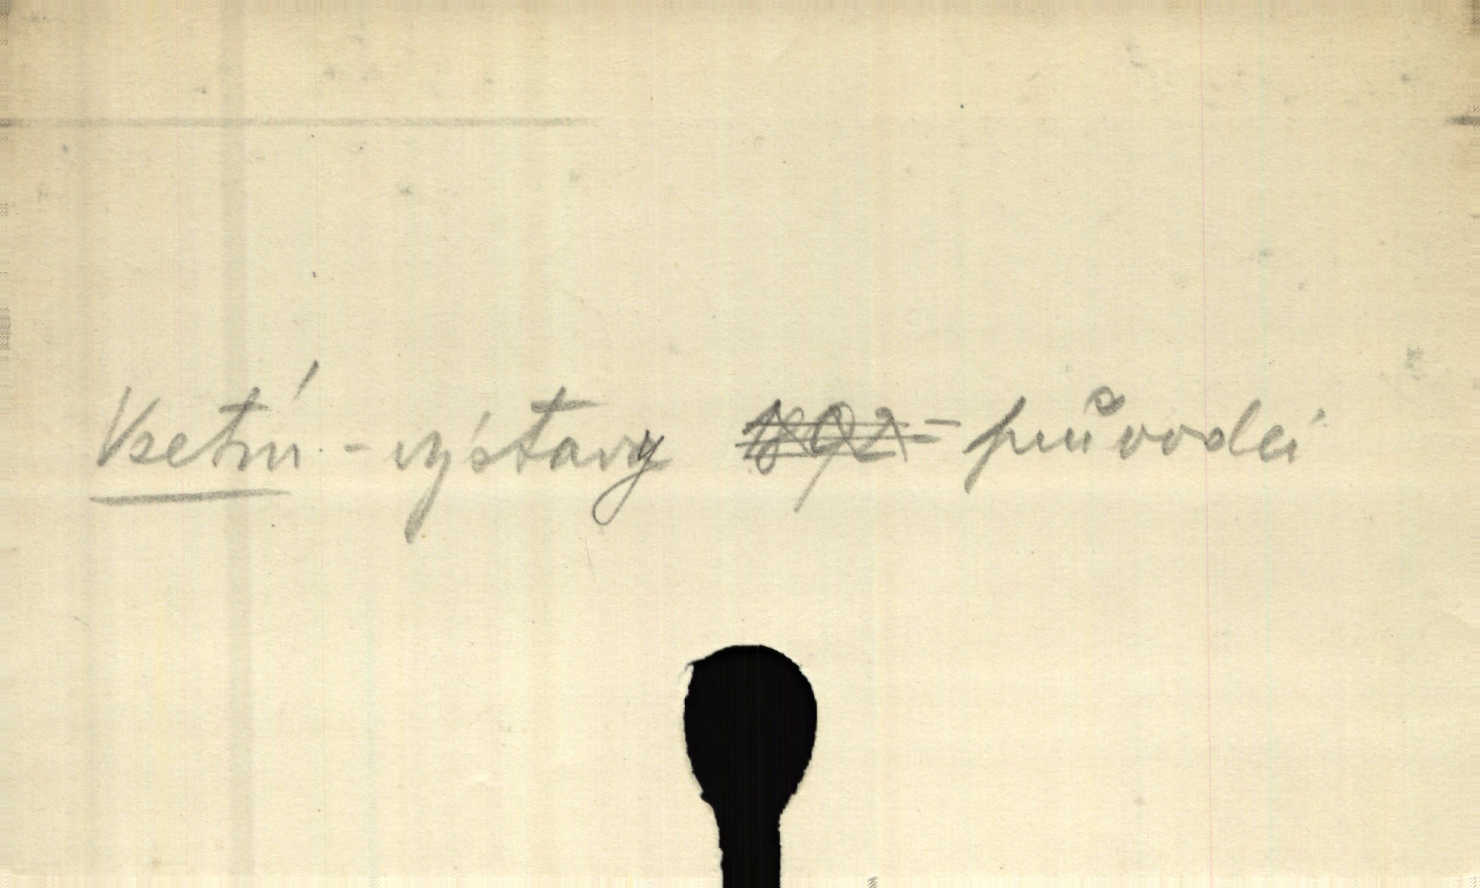 Vsetín - výstavy 1892 - průvodci